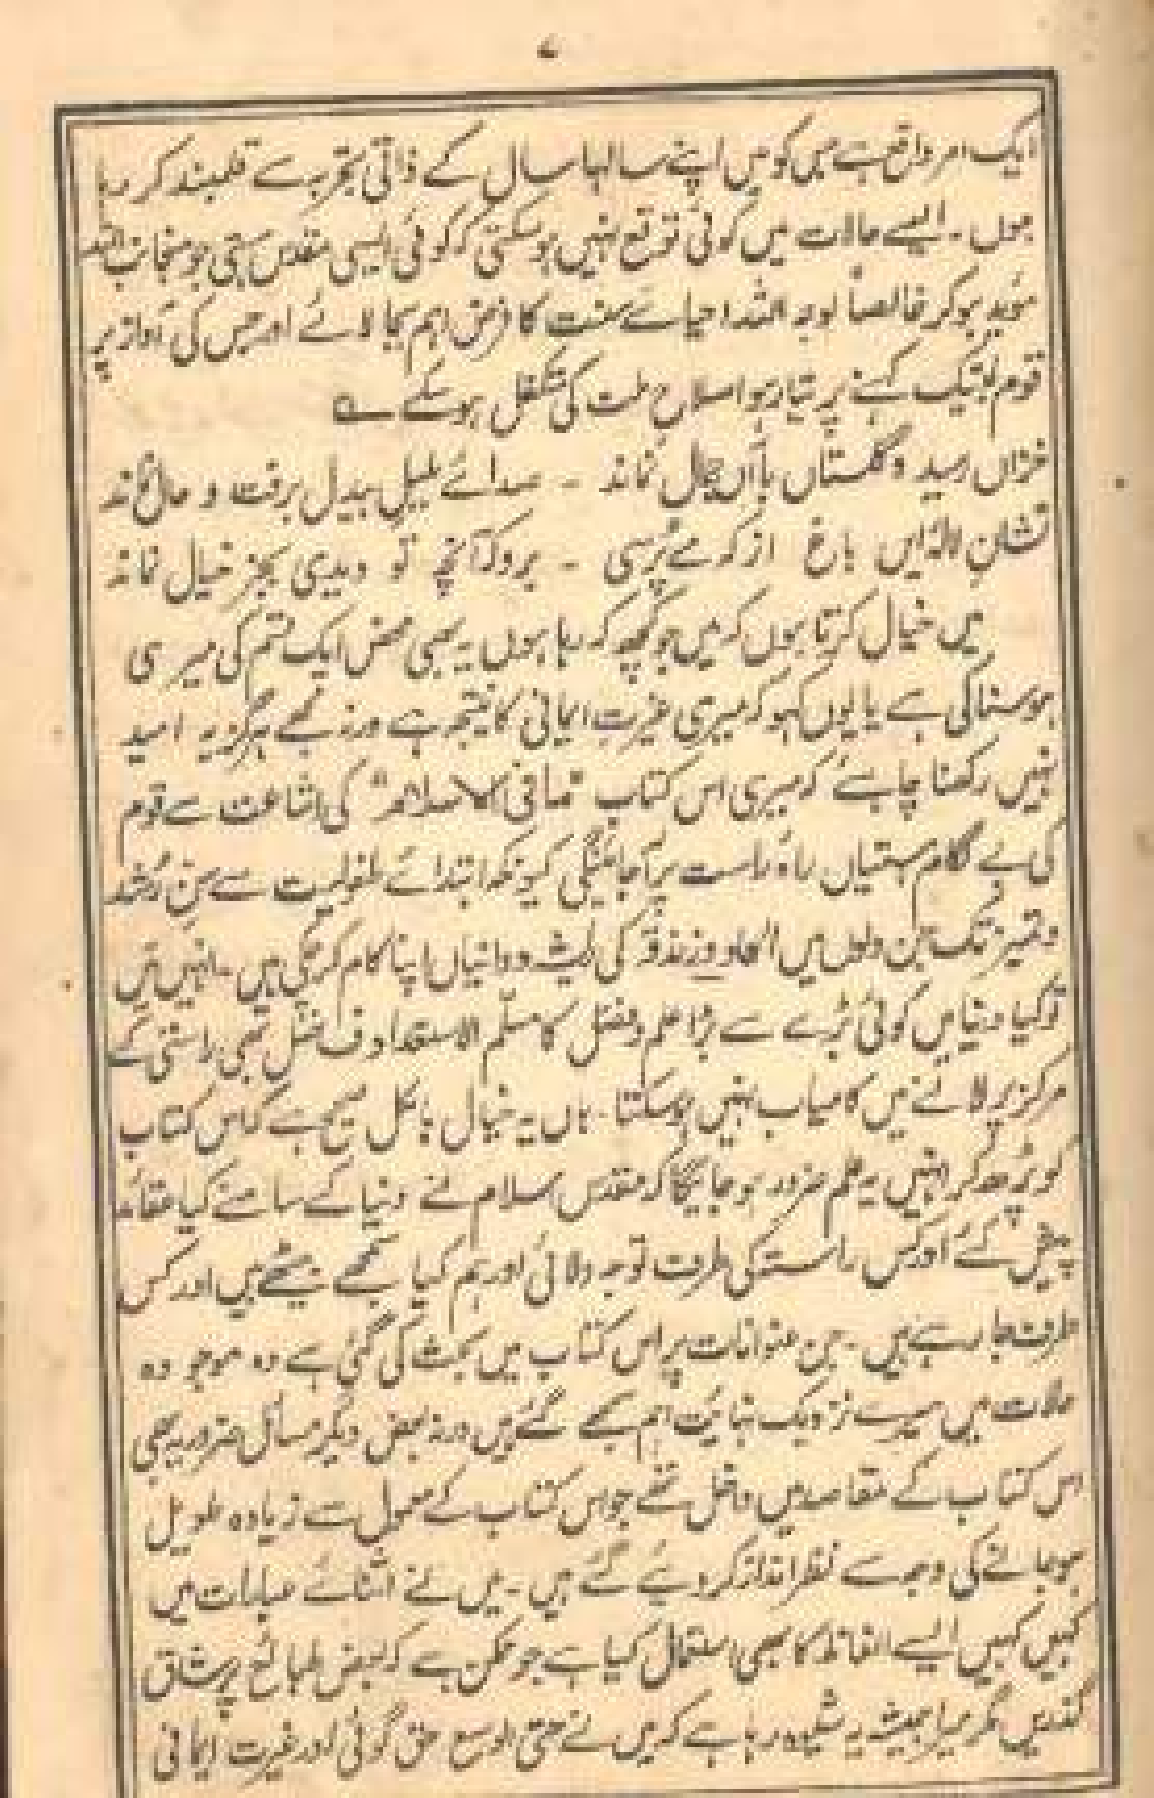 ۷
ایک امر واقعہ ہے جس کو میں اپنے سالہا سال کے ذاتی تجربہ سے قلمبند کر رہا
ہوں ۔ ایسے حالات میں کوئی توقع نہیں ہوسکتی کہ کوئی ایسی مقدس ہستی جو منجانب اللہ
موید ہوکر خالصاً لوجہ اللہ احیائے سنت کا فرض اہم بجا لائے اور جس کی آواز پر
قوم لبیک کہنے پر تیار ہو اصلاح ملت کی متکفل ہوسکے ؎
خزاں رسید و گلستاں باآں جمال نماند ۔ صدائے بلبل بیدل برفت و حال نماند
نشان لالۂ ایں باغ از کہ مے پُرسی ۔ برو کہ آنچہ تو دیدی بجز خیال نماند
میں خیال کرتا ہوں کہ میں جو کچھ کر رہا ہوں یہ بھی محض ایک قسم کی میری
ہوسناکی ہے یا یوں کہو کہ میری غیرت ایمانی کا نتیجہ ہے ورنہ مجھے ہرگز یہ امید
نہیں رکھنا چاہئے کہ میری اس کتاب "مافی الاسلام" کی اشاعت سے قوم
کی بے لگام ہستیاں راہ راست پر آجائینگی کیونکہ ابتدائے طفولیت سے سن رُشد
و تمیز تک جن دلوں میں الحاد و زندقہ کی ریشہ دوانیاں اپنا کام کرچکی ہیں ۔ انہیں میں
تو کیا دنیا میں کوئی بڑے سے بڑا علم و فضل کا مسلّم الاستعداد فاضل بھی راستی کے
مرکز پر لانے میں کامیاب نہیں ہوسکتا ۔ ہاں یہ خیال بالکل صحیح ہے کہ اس کتاب
کو پڑھ کر انہیں یہ علم ضرور ہو جائیگا کہ مقدس اسلام نے دنیا کے سامنے کیا عقائد
پیش کئے اور کس راستہ کی طرف توجہ دلائی اور ہم کیا سمجھے بیٹھے ہیں اور کس
طرف جا رہے ہیں ۔ جن عنوانات پر اس کتاب میں بحث کی گئی ہے وہ موجودہ
حالات میں میرے نزدیک نہائت اہم سمجھے گئے ہیں ورنہ بعض دیگر مسائل ضروریہ بھی
اس کتاب کے مقاصد میں داخل تھے جو اس کتاب کے معمول سے زیادہ طویل
ہوجانے کی وجہ سے نظر انداز کر دیئے گئے ہیں ۔ میں نے اثنائے عبارات میں
کہیں کہیں ایسے الفاظ کا بھی استعمال کیا ہے جو ممکن ہے کہ بعض طبائع پر شاق
گذریں مگر میرا ہمیشہ یہ شیوہ رہا ہے کہ میں نے حتی الوسع حق گوئی اور غیرت ایمانی